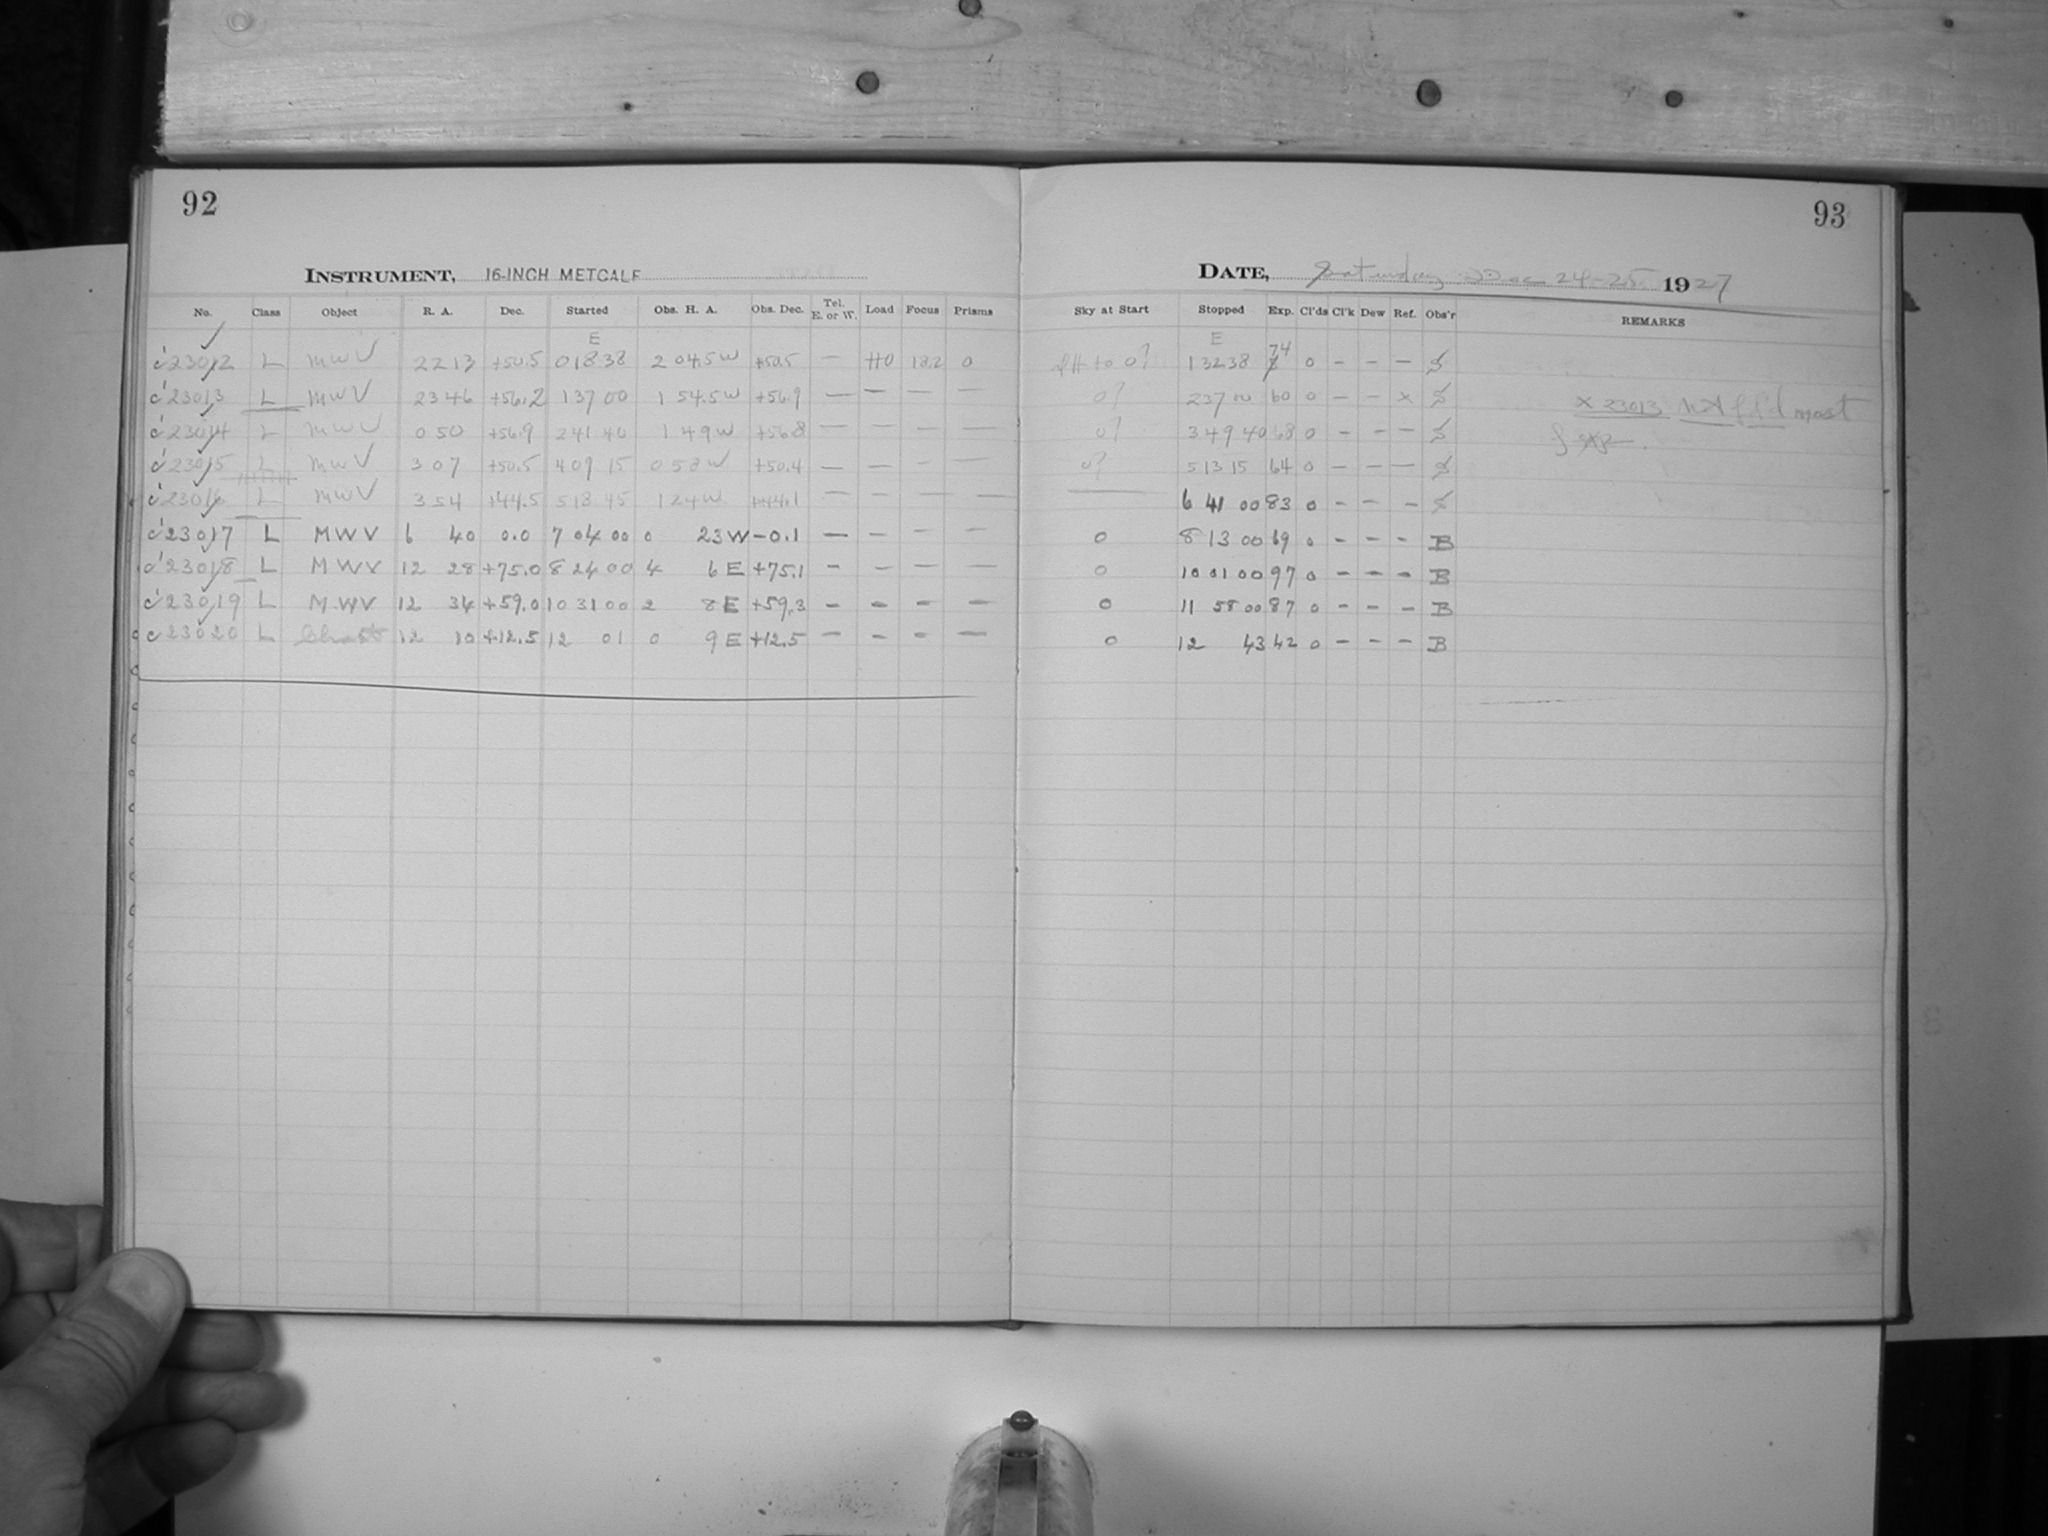 92
INSTRUMENT, 16-INCH METCALF
No. Class Object R. A. Dec. Started Obs. H. A. Obs. Dec. Tel. E. or W. Load Focus Prisms
E
c'23012 L MWV 22 13 +50.5 0 18 38 2 04.5 W +50.5 — HO 18.2 0
c'23013 L MWV 23 46 +56.2 1 37 00 1 54.5 W +56.9 — — — —
c'23014 L MWV 0 50 +56.9 2 41 40 1 49 W +56.8 — — — —
c'23015 L MWV 3 07 +50.5 4 09 15 0 58 W +50.4 — — — —
c'23016 L MWV 3 54 +44.5 5 18 45 1 24 W +44.1 — — — —
c'23017 L MWV 6 40 0.0 7 04 00 0 23 W -0.1 — — — —
c'23018 L MWV 12 28 +75.0 8 24 00 4 6 E +75.1 — — — —
c'23019 L MWV 12 34 +59.0 10 31 00 2 8 E +59.3 — — — —
c'23020 L 12 10 +12.5 12 01 0 9 E +12.5 — — — —
93
DATE, Saturday Dec 24-25 1927
Sky at Start Stopped Exp. Cl'ds Cl'k Dew Ref. Obs'r REMARKS
E
to 0? 1 32 38 74 0 — — — S
0? 2 37 00 60 0 — — x S x 23013 Not f f'd most
0? 3 49 40 68 0 — — — S
0? 5 13 15 64 0 — — — S
— 6 41 00 83 0 — — — S
0 8 13 00 69 0 — — — B
0 10 01 00 97 0 — — — B
0 11 58 00 87 0 — — — B
0 12 43 42 0 — — — B